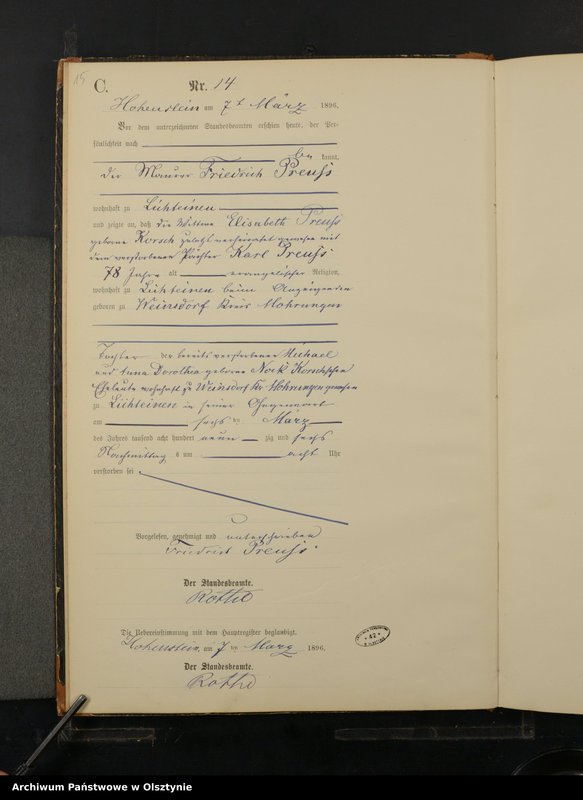 15
C.
Nr. 14
Hohenstein am 7t März 1896.
Vor dem unterzeichneten Standesbeamten erschien heute, der Per-
sönlichkeit nach
be kannt,
der Maurer Friedrich Preuß
wohnhaft zu Lichteinen
und zeigte an, daß die Wittwe Elisabeth Preuß
geborne Korsch zuletzt verheirathet gewesen mit
dem verstorbenen Karl Preuß
78 Jahre alt evangelischer Religion,
wohnhaft zu Lichteinen beim Anzeigenden
geboren zu Weinsdorf Kreis Mohrungen
Tochter der bereits verstorbenen Michael
und Anna Dorothea geborne Korschschen
Eheleute wohnhaft zu Weinsdorf Kr Mohrungen gewesen
zu Lichteinen in seiner Gegenwart
am sechs ten März
des Jahres tausend acht hundert neun zig und sechs
Nachmittag s um acht Uhr
verstorben sei.
Vorgelesen, genehmigt und unterschrieben
Friedrich Preuß.
Der Standesbeamte.
Rothe
Die Uebereinstimmung mit dem Hauptregister beglaubigt.
Hohenstein, am 7 ten März 1896.
Der Standesbeamte.
Rothe
42
Archiwum Państwowe w Olsztynie